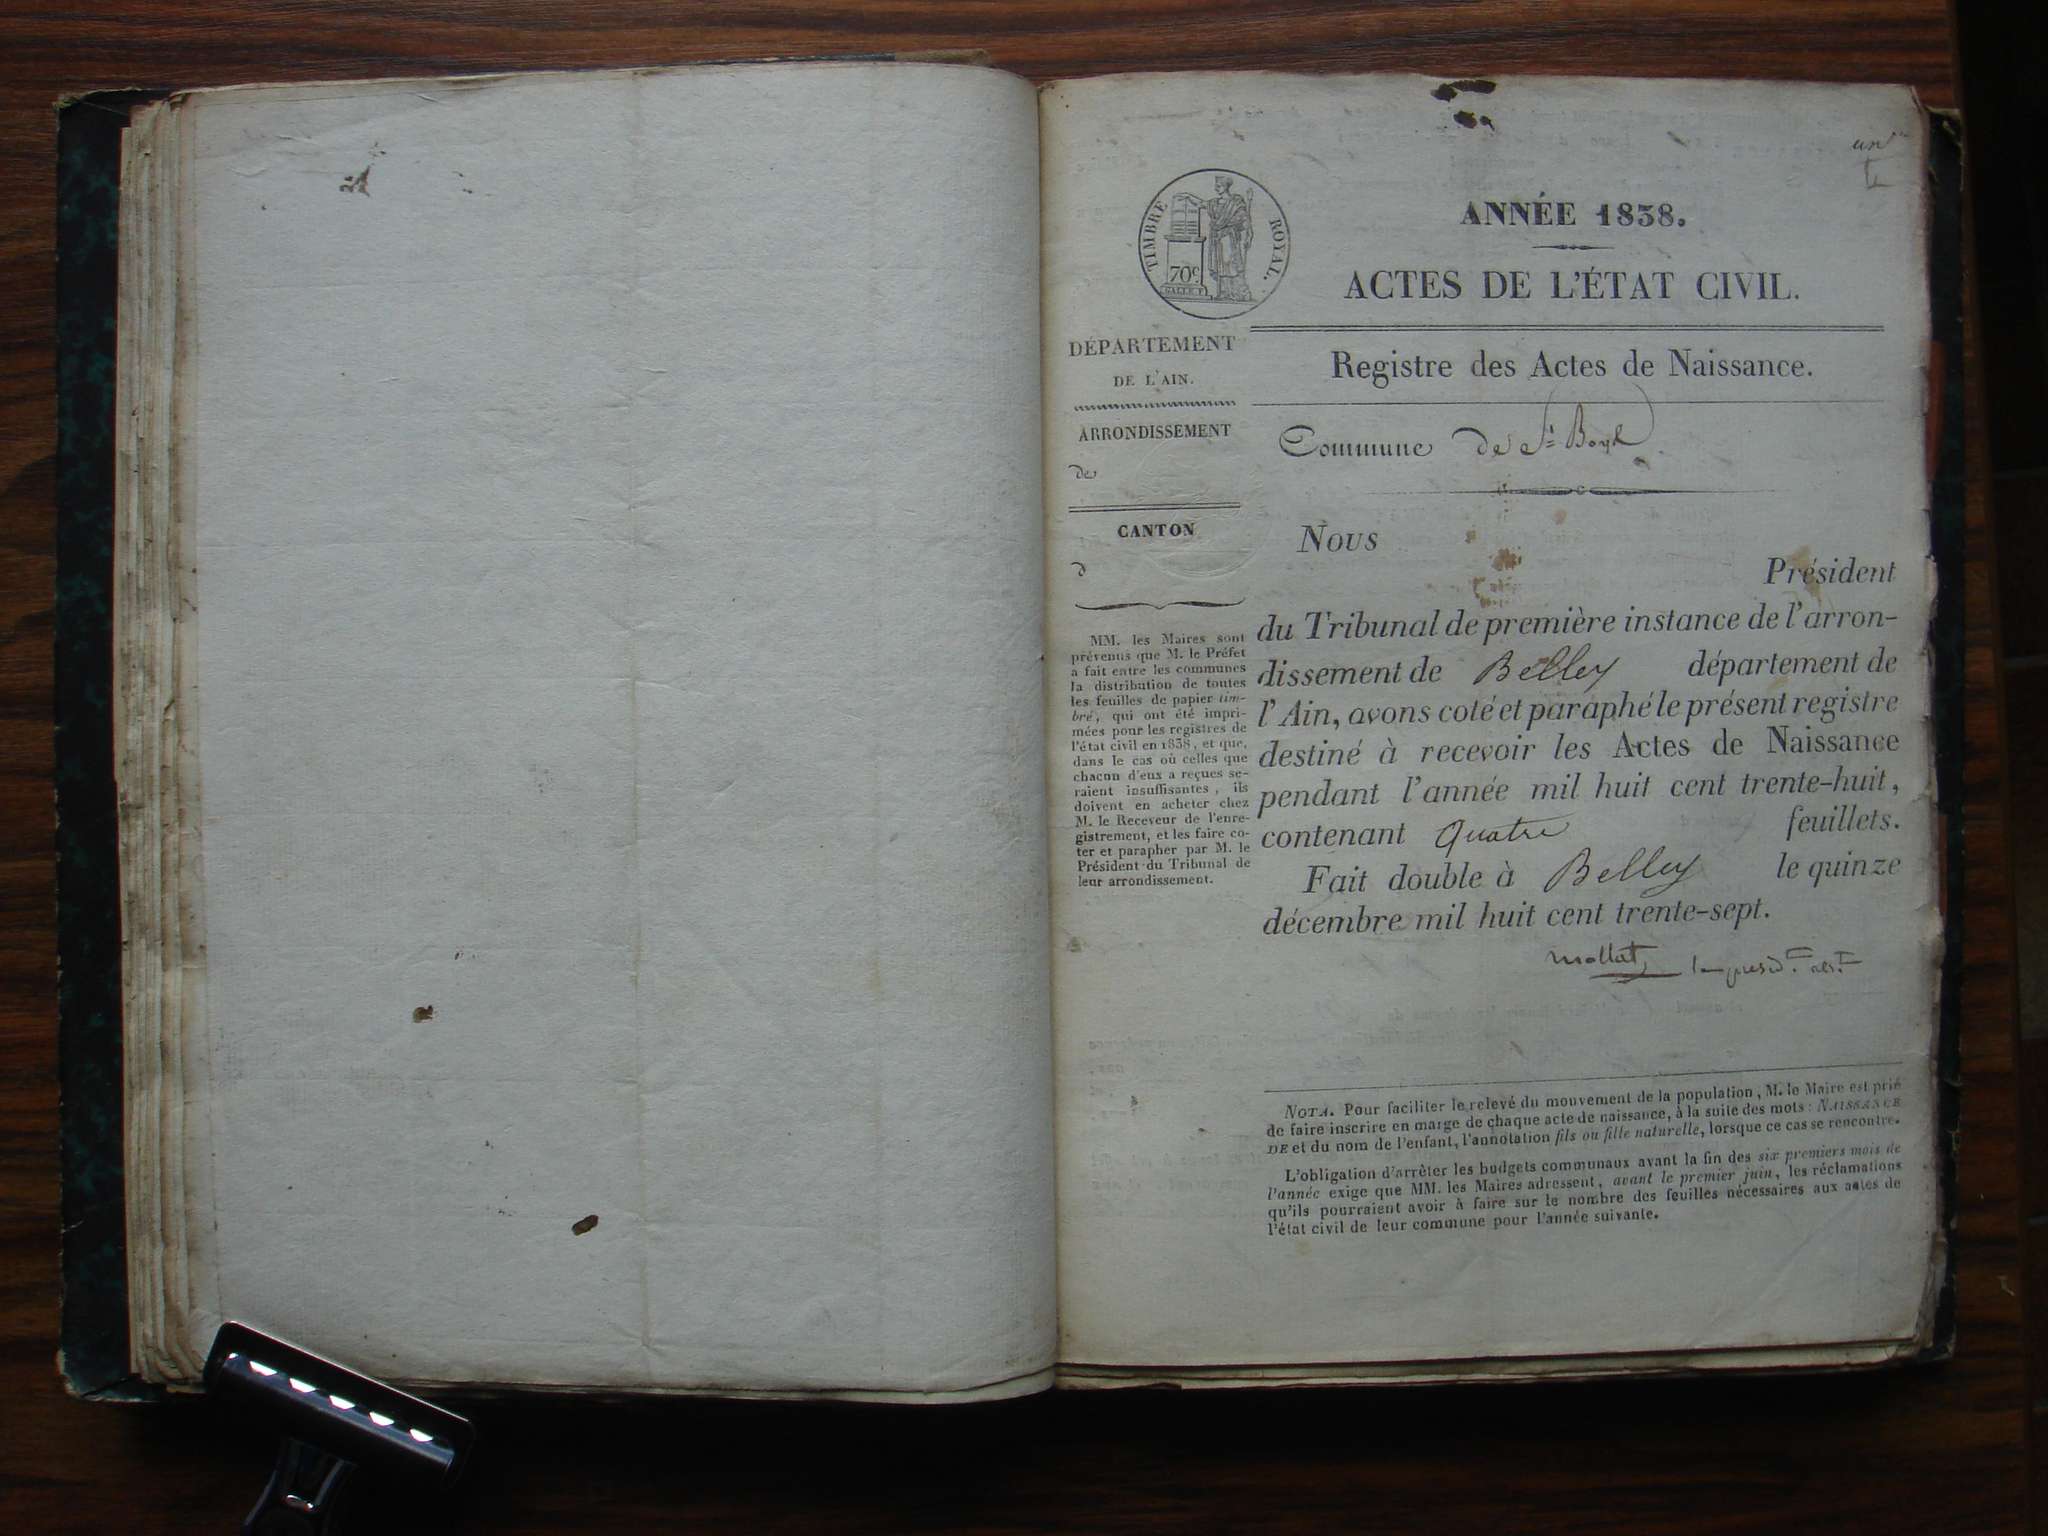 un
TIMBRE ROYAL.
70c
GALLE F.
ANNÉE 1838.
ACTES DE L'ÉTAT CIVIL.
DÉPARTEMENT
DE L'AIN.
ARRONDISSEMENT
de
CANTON
d
MM. les Maires sont
prévenus que M. le Préfet
a fait entre les communes
la distribution de toutes
les feuilles de papier tim-
bré, qui ont été impri-
mées pour les registres de
l'état civil en 1838, et que,
dans le cas où celles que
chacun d'eux a reçues se-
raient insuffisantes, ils
doivent en acheter chez
M. le Receveur de l'enre-
gistrement, et les faire co-
ter et parapher par M. le
Président du Tribunal de
leur arrondissement.
Registre des Actes de Naissance.
Commune de St
Nous
Président
du Tribunal de première instance de l'arron-
dissement de Belley département de
l'Ain, avons coté et paraphé le présent registre
destiné à recevoir les Actes de Naissance
pendant l'année mil huit cent trente-huit,
contenant quatre feuillets.
Fait double à Belley le quinze
décembre mil huit cent trente-sept.
mollat,
NOTA. Pour faciliter le relevé du mouvement de la population, M. le Maire est prié
de faire inscrire en marge de chaque acte de naissance, à la suite des mots: NAISSANCE
DE et du nom de l'enfant, l'annotation fils ou fille naturelle, lorsque ce cas se rencontre.
L'obligation d'arrêter les budgets communaux avant la fin des six premiers mois de
l'année exige que MM. les Maires adressent, avant le premier juin, les réclamations
qu'ils pourraient avoir à faire sur le nombre des feuilles nécessaires aux actes de
l'état civil de leur commune pour l'année suivante.